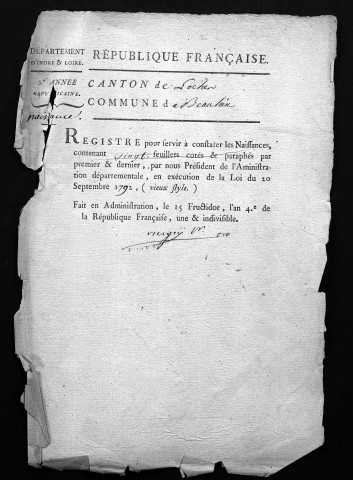 DÉPARTEMENT
D'INDRE & LOIRE.
RÉPUBLIQUE FRANÇAISE.
5.e ANNÉE
RÉPUBLICAINE.
naissance
CANTON de Loches
COMMUNE de Beaulieu
REGISTRE pour servir à constater les Naissances,
contenant vingt feuillets cotés & paraphés par
premier & dernier, par nous Président de l'Aministra
tion départementale, en exécution de la Loi du 20
Septembre 1792, (vieux style.)
Fait en Administration, le 25 Fructidor, l'an 4.e de
la République Française, une & indivisible.